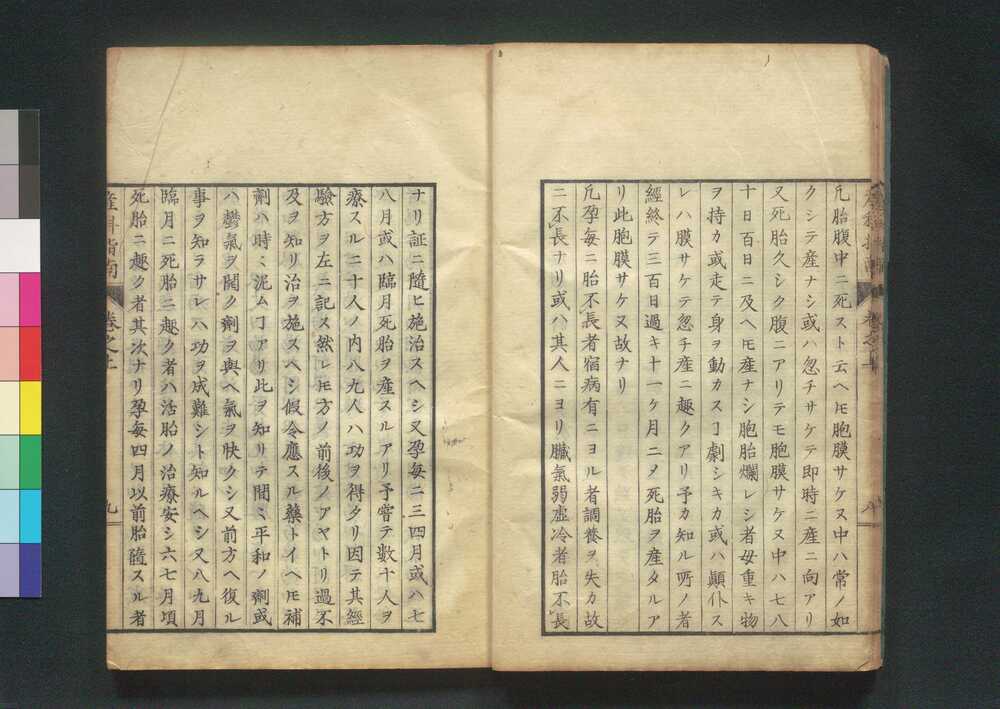 凢胎腹中ニ死スト云ヘ𪜈胞膜サケヌ中ハ常ノ如
クシテ産ナシ或ハ忽チサケテ即時ニ産ニ向アリ
又死胎久シク腹ニアリテモ胞膜サケヌ中ハ七八
十日百日ニ及ヘ𪜈産ナシ胞胎爛レシ者毋重キ物
ヲ持カ或走テ身ヲ動カスヿ劇シキカ或ハ顚仆ス
レハ膜サケテ忽チ産ニ趣クアリ予カ知ル所ノ者
經終テ三百日過キ十一ケ月ニメ死胎ヲ産タルア
リ此胞膜サケヌ故ナリ
凢孕毎ニ胎不長者宿病有ニヨル者調養ヲ失カ故
ニ不長ナリ或ハ其人ニヨリ臓氣弱虚冷者胎不長
ナリ証ニ隨ヒ施治スヘシ又孕毎ニ三四月或ハ七
八月或ハ臨月死胎ヲ産スルアリ予嘗テ數十人ヲ
療スルニ十人ノ内八九人ハ功ヲ得タリ因テ其經
驗方ヲ左ニ記ス然レ𪜈方ノ前後ノアヤトリ過不
及ヲ知リ治ヲ施スヘシ假令應スル藥トイヘ𪜈補
劑ハ時〻泥ムヿアリ此ヲ知リテ間〻平和ノ劑或
ハ鬱氣ヲ開ノ劑ヲ與ヘ氣ヲ快クシ又前方ヘ復ル
事ヲ知ラサレハ功ヲ成難シト知ルヘシ又八九月
臨月ニ死胎ニ趣ク者ハ活胎ノ治療安シ六七月頃
死胎ニ趣ク者其次ナリ孕毎四月以前胎墮スル者
産科指南
卷之上
九